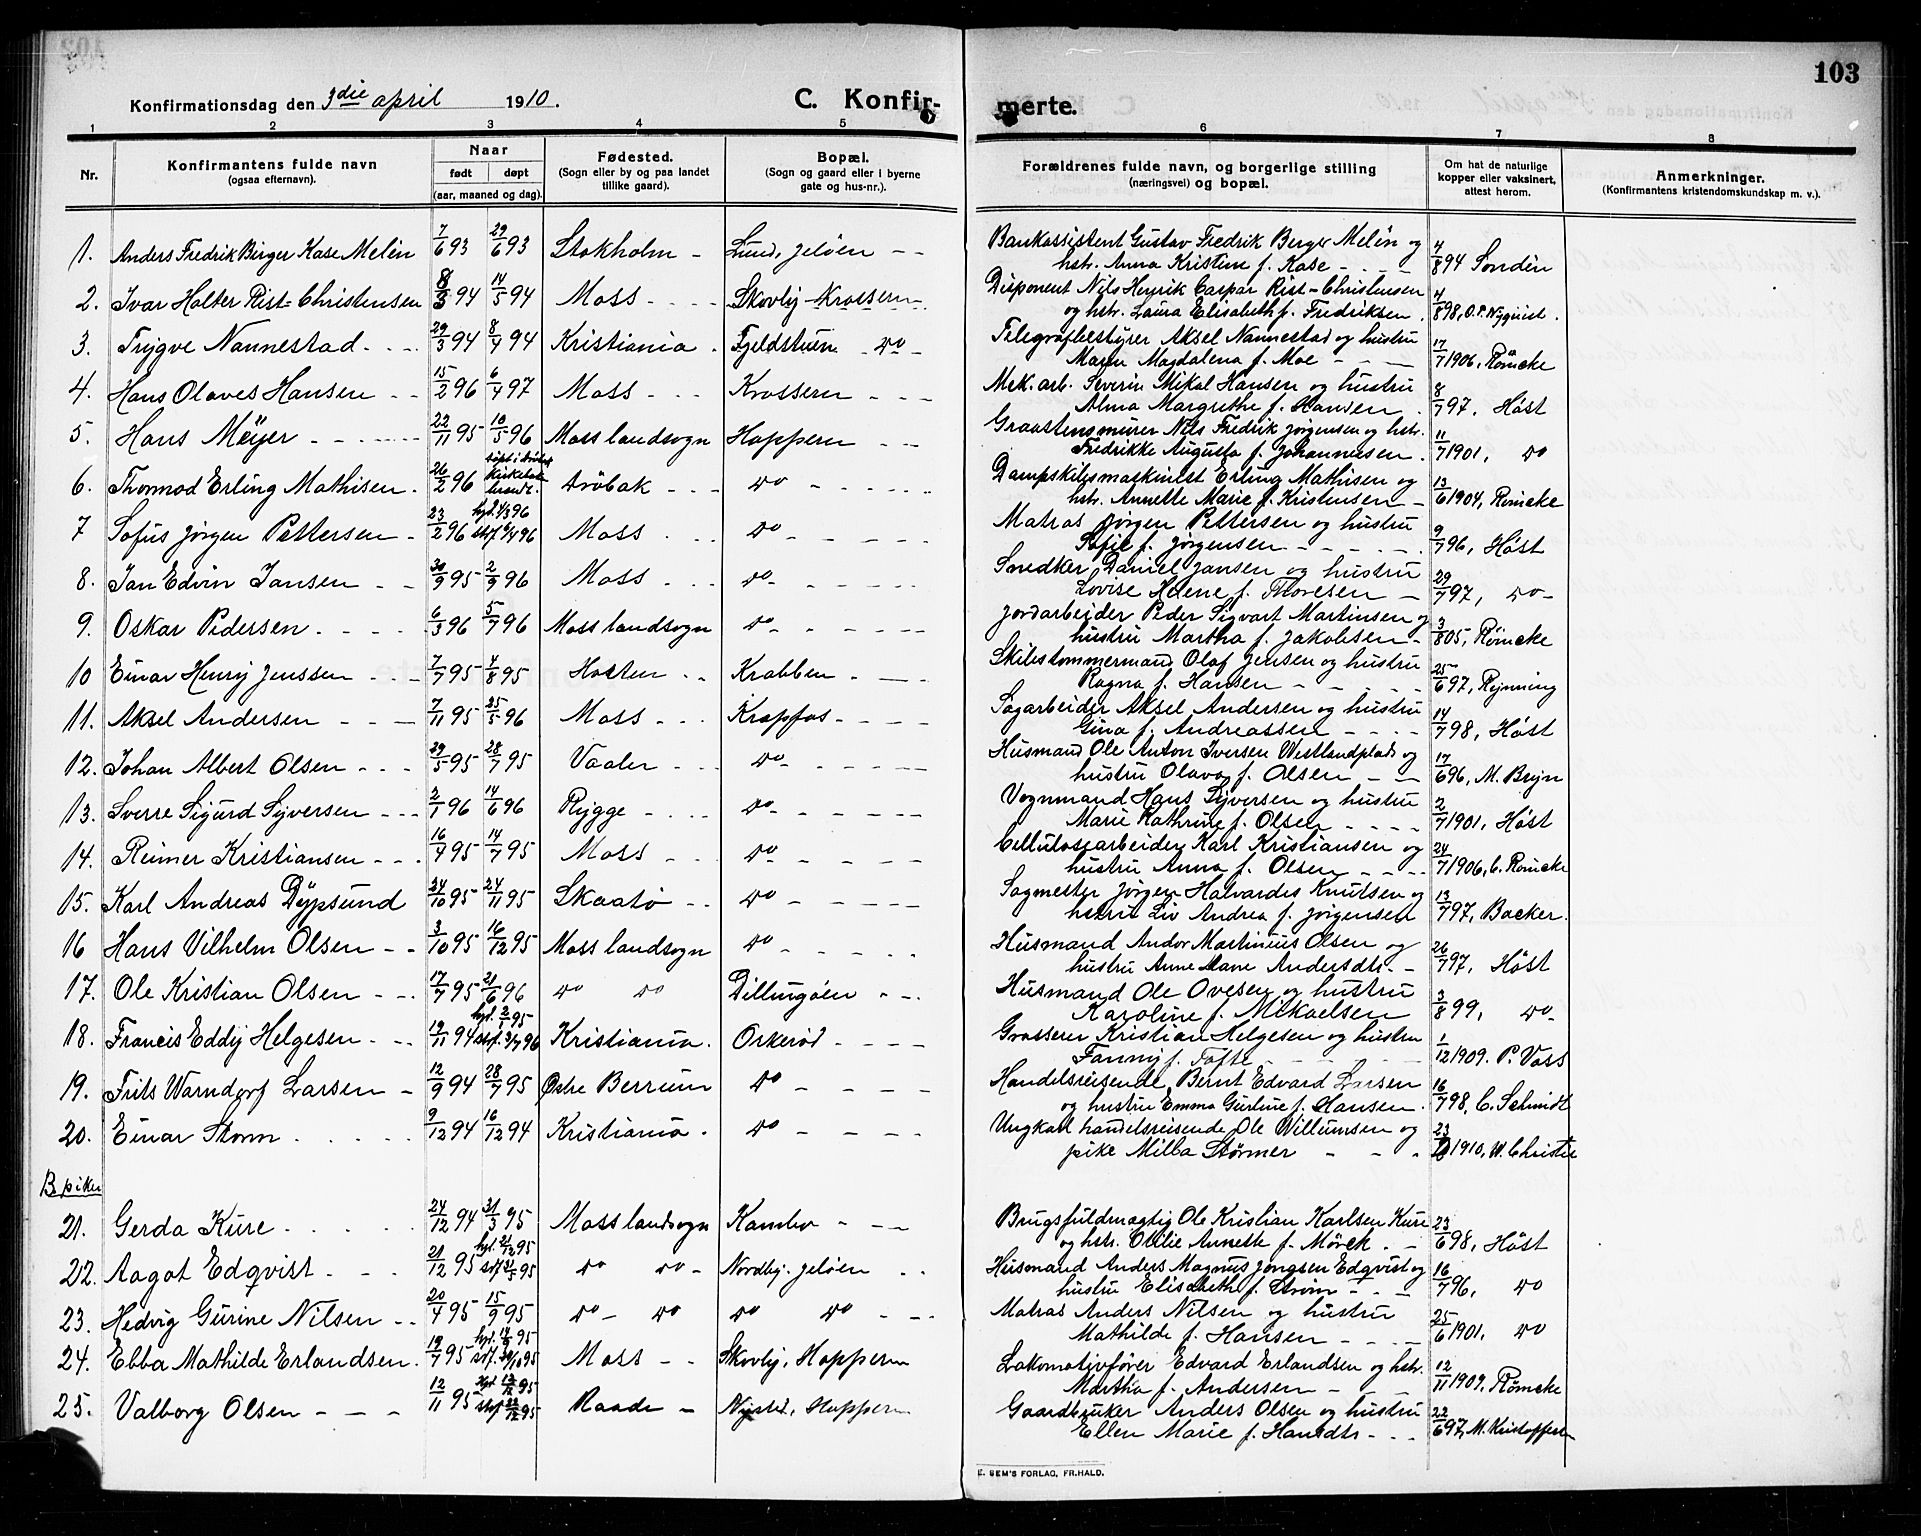 103
Konfirmationsdag den 3die april 1910. C. Konfirmerte.
1 2 3 4 5 6 7 8
Nr.
Konfirmantens fulde navn
(ogsaa efternavn).
Naar
født døpt
(aar, maaned og dag).
Fødested.
(Sogn eller by og paa landet
tillike gaard).
Bopæl.
(Sogn og gaard eller i byerne
gate og hus-nr.).
Forældrenes fulde navn, og borgerlige stilling
(næringsvei) og bopæl.
Om hat de naturlige
kopper eller vaksinert,
attest herom.
Anmerkninger.
(Konfirmantens kristendomskundskap m. v.).
1. Anders Fredrik Birger Kase Melén 7/6 93 29/6 93 Stokholm - Lund, Jeløen - - Bankassistent Gustav Fredrik Berger Melén og
hstr. Anna Kristine f. Kase - 4/8 94 Sondén
2. Ivar Holter Rist-Christensen 8/3 94 14/5 94 Moss - Skovly Krossern Disponent Nils Henrik Caspar Rist-Christensen
og hstr. Laura Elisabeth f. Fredriksen. 4/8 98, O.P. Nyquist.
3. Trygve Nannestad - 29/3 94 8/4 94 Kristiania. Fjeldstuen do Telegrafbestyrer Aksel Nannestad og hustru
Magdalena f. Moe - 17/7 1906, Römcke
4. Hans Olaves Hansen - 15/2 96 6/4 97 Moss - Krossern - Mek. arb. Severin Mikal Hansen og hustru
Alma Margrethe f. Hansen. 8/7 97, Høst
5. Hans Meyer - 22/11 95 10/5 96 Moss landsogn Hoppern - Graastensmurer Nils Fredrik Jørgensen og hstr.
Fredrikke Augusta f. Johannesen. 11/7 1901, do
6. Thormod Erling Mathisen. 26/2 96 døpt i Drøbak Kirkebok Drøbak - do - Dampskibsmaskinist Erling Mathisen og
hstr. Annette Marie f. Kristensen - 13/6 1904, Römcke
7 Sofus Jørgen Pettersen - 23/2 96 hjd. 1/3 96 stf. 6/4 96 Moss do - Matros Jørgen Pettersen og hustru
Sofie f. Jørgensen - 9/7 96, Høst
8. Jan Edvin Jansen - 30/9 95 2/9 96 Moss do - Snedker Daniel Jansen og hustru
Lovise Helene f. Thoresen - 29/7 97, do
9. Oskar Pedersen. 6/3 96 5/7 96 Moss landsogn do - Jordarbeider Peder Sigvart Martinsen og
hustru Martha f. Jakobsen - 3/8 05, Römcke
10 Einar Henry Jenssen - 7/7 95 4/8 95 Horten Krabben - Skibstømmermand Olaf Jensen og hustru
Ragna f. Hansen - 25/6 97, Rynning
11. Aksel Andersen - 7/11 95 25/5 96 Moss Krapfos - Sagarbeider Aksel Andersen og hustru
Gina f. Andreassen - 14/7 98, Høst
12. Johan Albert Olsen - 29/5 95 28/7 95 Vaaler do - Husmand Ole Anton Iversen Westlandplads og
hustru Olava f. Olsen - 17/6 96, M. Bryn
13. Sverre Sigurd Syversen - 2/1 96 14/6 96 Rygge do - Vognmand Hans Syversen og hustru
Marie Kathrine f. Olsen - 2/7 1901, Høst
14. Reimer Kristiansen - 16/4 95 14/7 95 Moss do - Cellulosearbeider Karl Kristiansen og
hustru Anna f. Olsen - 24/7 1906, C. Römcke
15. Karl Andreas Dypsund 24/10 95 24/11 95 Skaatø do - Sagmester Jørgen Halvardes Knutsen og
hustru Liv Andrea f. Jørgensen 13/7 97, Backer.
16 Hans Vilhelm Olsen - 3/10 95 16/12 95 Moss landsogn do - Husmand Andor Martinius Olsen og
hustru Anne Marie Andersdtr. - 26/7 97, Høst
17. Ole Kristian Olsen - 17/7 95 21/6 96 do do Dillingøen - Husmand Ole Ovesen og hustru
Karoline f. Mikaelsen 3/8 99, do
18. Francis Eddy Helgesen - 19/11 94 hjd. 2/1 95 stf. 3/7 96 Kristiania. Orkerød - Grosserer Kristian Helgesen og hustru
Fanny f. Tofte - 1/12 1909. P. Voss
19. Frits Warndorf Larsen - 12/9 94 28/7 95 Østre Berrum do - Handelsreisende Bernt Edvard Larsen
og hustru Emma Gurine f. Hansen. 16/7 98, C. Schmidt
20. Einar Storm 9/12 94 16/12 94 Kristiania. do - Ungkarl handelsreisende Ole Willumsen og
pike Milba Størmer - 23/ 1910, W. Christie
B piker
21. Gerda Kure 24/12 94 31/3 95 Moss landsogn Kambo - Brugsfuldmægtig Ole Kristian Karlsen Kure
og hstr. Otilie Annette f. Mörck. - 23/6 98, Høst
22. Aagot Edqvist - 21/12 95 hjd. 21/12 95 stf. 31/5 95 do do - Nordby, Jeløen Husmand Anders Magnus Jongsen Edqvist og
hustru Elisabeth f. Strøm - 16/7 96, do
23. Hedvig Gurine Nilsen - 20/4 95 15/9 95 do do do do - Matros Anders Nilsen og hustru
Mathilde f. Hansen - 25/6 1901, do
24. Ebba Mathilde Erlandsen. 19/7 95 hjd. 14/8 95 stf. 20/10 95 Moss - Skovly, Hoppern Lokomotivfører Edvard Erlandsen og hstr.
Martha f. Andersen - 12/11 1909, Römcke
25. Valborg Olsen - 12/11 95 hjd. 13/12 95 stf. 22/12 95 Raade - Nysted, Hoppern Gaardbruker Anders Olsen og hustru
Ellen Marie f. Hansdtr - 22/6 97, M. Kristoffersen
E. SEM'S FORLAG, FR.HALD.